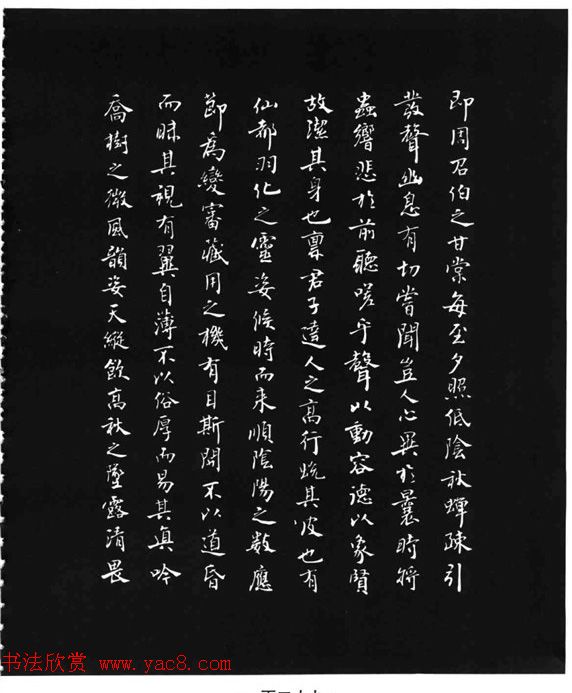 即周召伯之甘棠每至夕照低陰秋蟬疎引
發聲幽息有切嘗聞豈人心異於曩時將
蟲響悲於前聽嗟乎聲以動容德以象賢
故潔其身也禀君子達人之高行蛻其皮也有
仙都羽化之靈姿候時而来順陰陽之数應
節為變審藏用之機有目斯開不以道昏
而昧其視有翼自薄不以俗厚而易其真吟
喬樹之微風韻姿天縱飲高秋之墜露清畏
书法欣赏 www.yac8.com